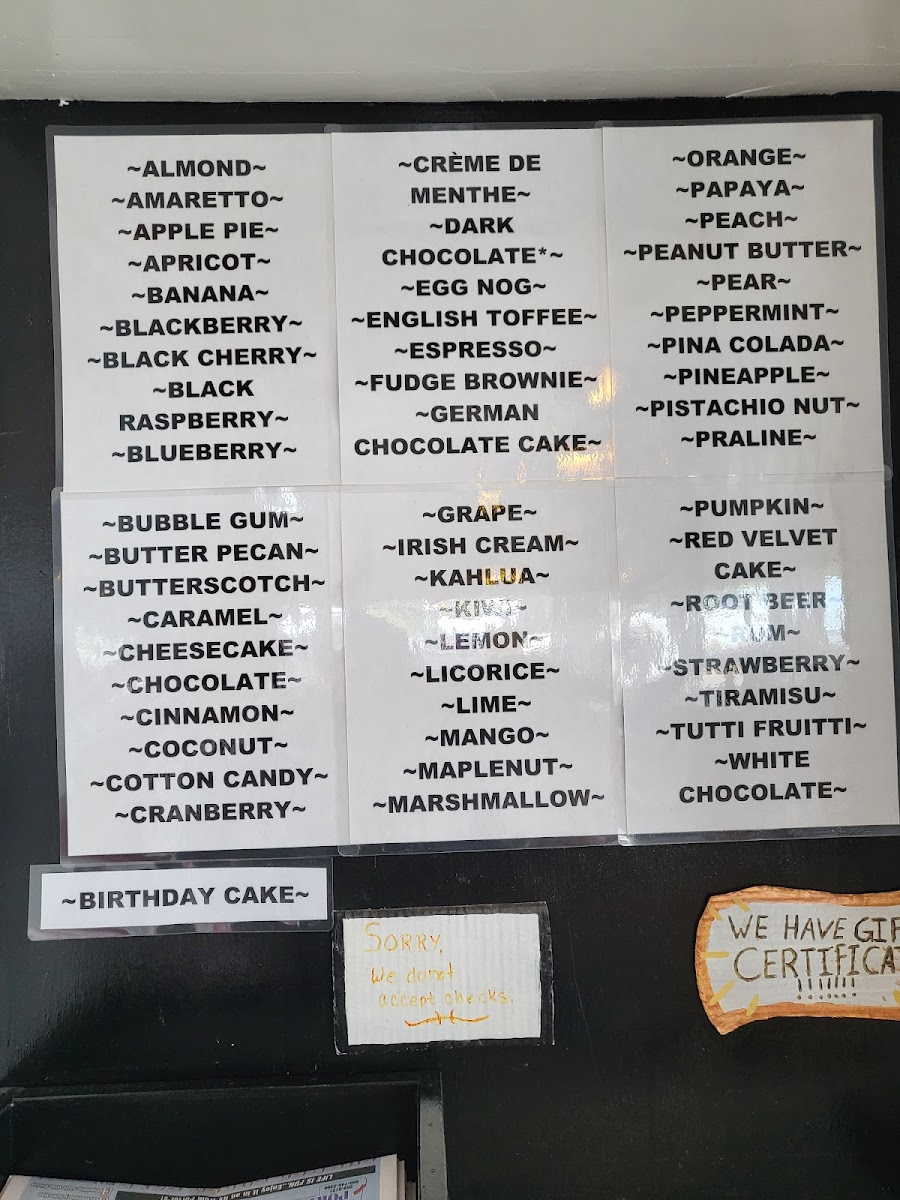 ~ALMOND~
~AMARETTO~
~APPLE PIE~
~APRICOT~
~BANANA~
~BLACKBERRY~
~BLACK CHERRY~
~BLACK
RASPBERRY~
~BLUEBERRY~
~CRÈME DE
MENTHE~
~DARK
CHOCOLATE*~
~EGG NOG~
~ENGLISH TOFFEE~
~ESPRESSO~
~FUDGE BROWNIE~
~GERMAN
CHOCOLATE CAKE~
~ORANGE~
~PAPAYA~
~PEACH~
~PEANUT BUTTER~
~PEAR~
~PEPPERMINT~
~PINA COLADA~
~PINEAPPLE~
~PISTACHIO NUT~
~PRALINE~
~BUBBLE GUM~
~BUTTER PECAN~
~BUTTERSCOTCH~
~CARAMEL~
~CHEESECAKE~
~CHOCOLATE~
~CINNAMON~
~COCONUT~
~COTTON CANDY~
~CRANBERRY~
~GRAPE~
~IRISH CREAM~
~KAHLUA~
~KIWI~
~LEMON~
~LICORICE~
~LIME~
~MANGO~
~MAPLENUT~
~MARSHMALLOW~
~PUMPKIN~
~RED VELVET
CAKE~
~ROOT BEER~
~RUM~
~STRAWBERRY~
~TIRAMISU~
~TUTTI FRUITTI~
~WHITE
CHOCOLATE~
~BIRTHDAY CAKE~
SORRY,
We donot
accept checks.
WE HAVE GIF
CERTIFICA
!!!!!!!
LIFE IS FUN...Enjoy it in an RV from Porter's!
POR